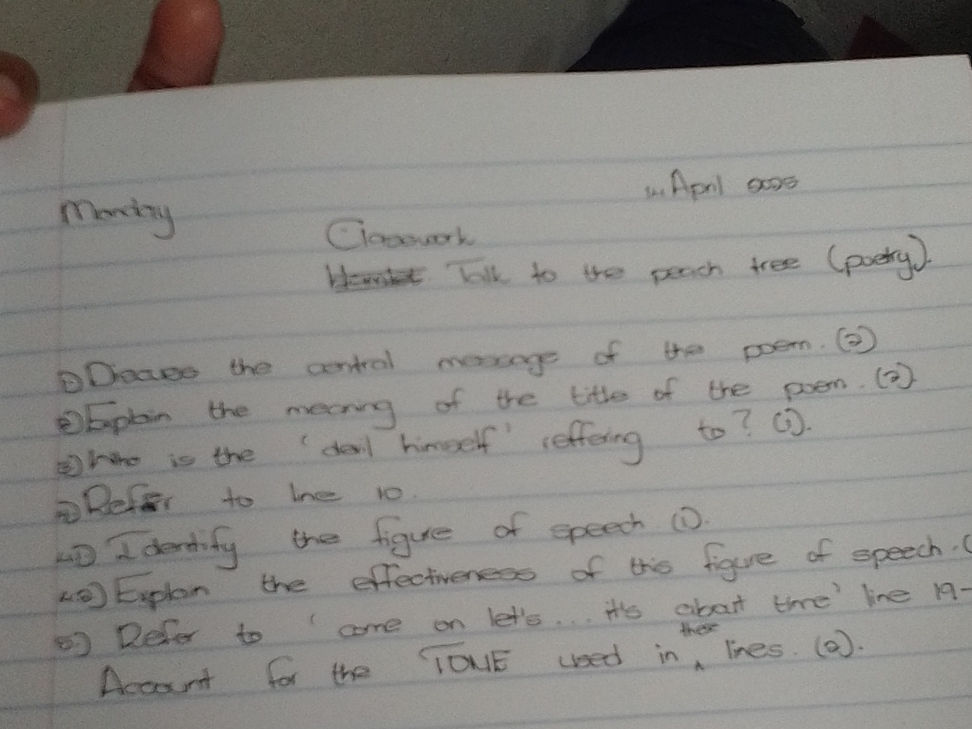 Monday
14 April 2025
Classwork
Talk to the peach tree (poetry).
1) Discuss the central message of the poem. (2)
2) Explain the meaning of the title of the poem. (2)
3) Who is the 'devil himself' reffering to? (1).
4) Refer to line 10.
4.1) Identify the figure of speech (1).
4.2) Explain the effectiveness of this figure of speech. (
5.) Refer to 'come on let's... it's about time' line 19-
Account for the TONE used in these lines. (2).